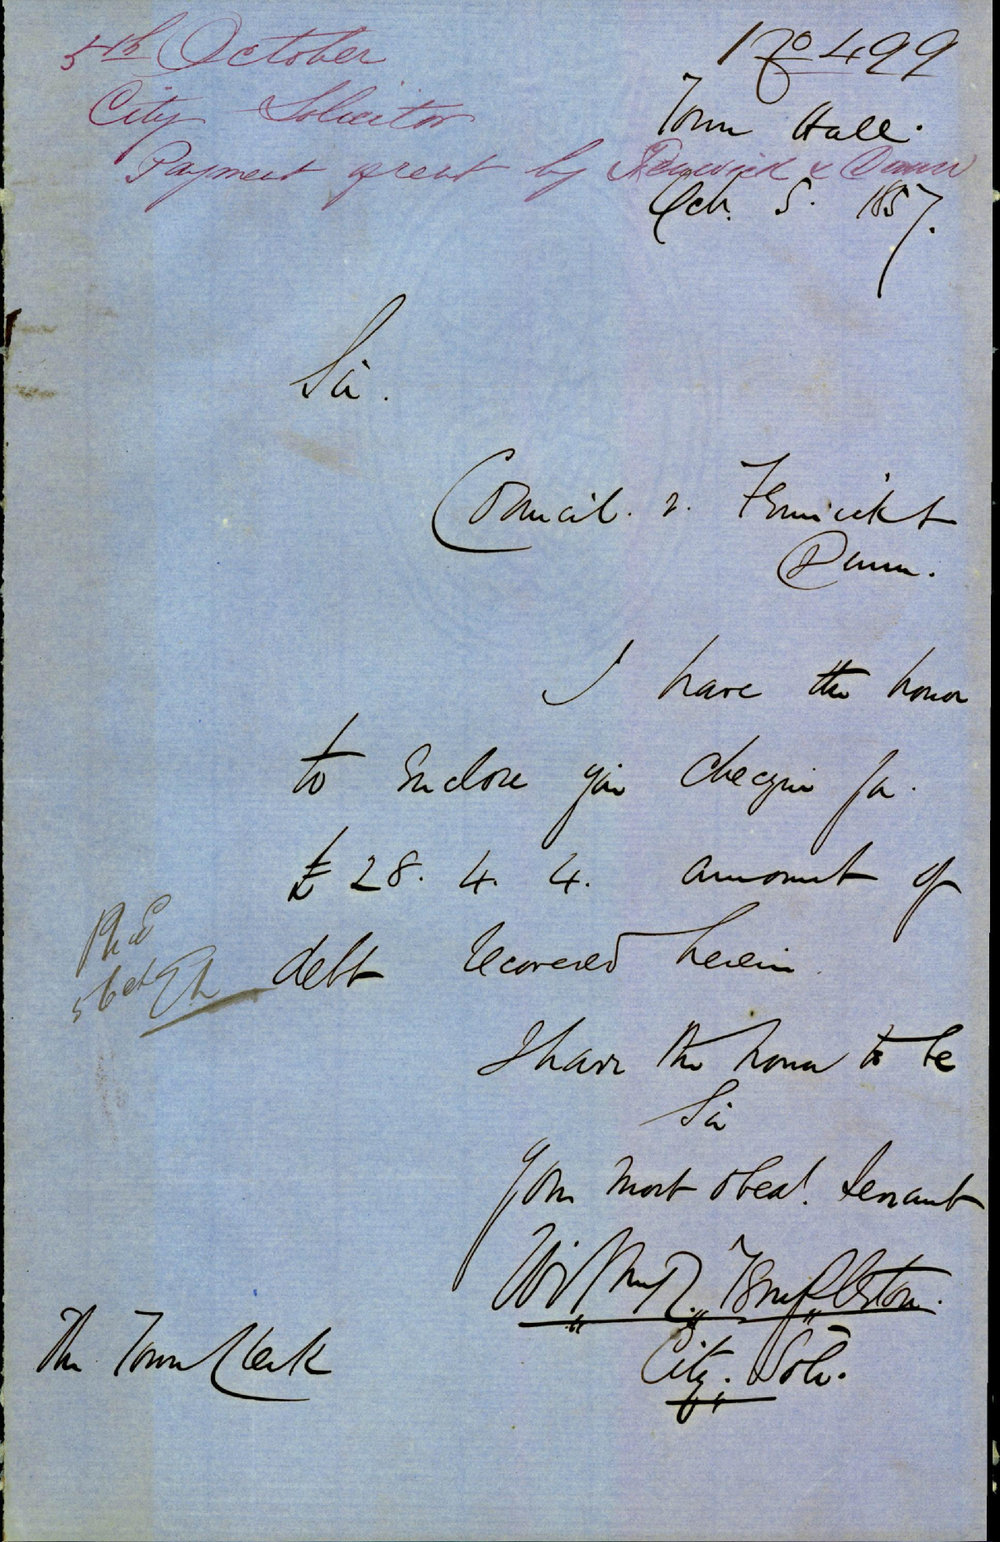 5th October
City Solicitor
Payment of rent by Fenwick & Dunn
No 499
Town Hall.
Oct. 5. 1857.
Sir.
Council. v. Fenwick &
Dunn.
I have the honor
to enclose your cheque for
£28. 4. 4. amount of
debt recovered herein
5 Oct
I have the honor to be
Sir
Your most obedt. Servant
Templeton.
City. Solr.
The Town Clerk